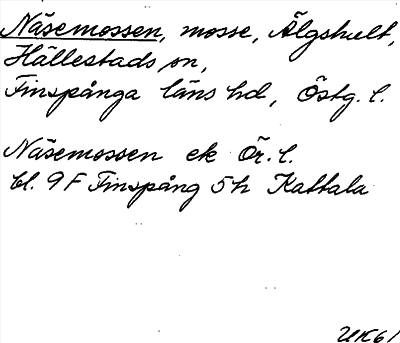 Näsemossen, mosse, Älgshult,
Hällestads sn,
Finspånga läns hd, Östg. l.
Näsemossen ek Ör. l.
bl. 9 F Finspång 5h Kattala
UK61